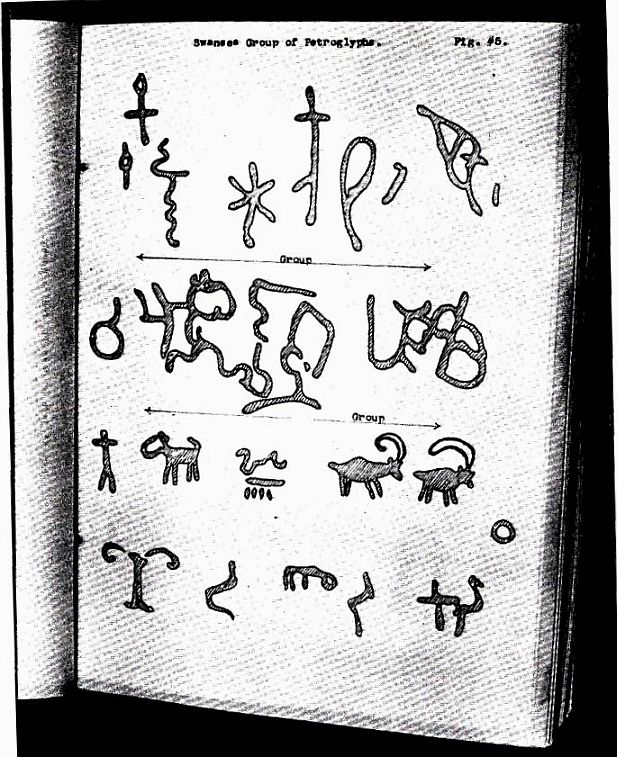 Swansea Group of Petroglyphs. Fig. #5.
Group
Group